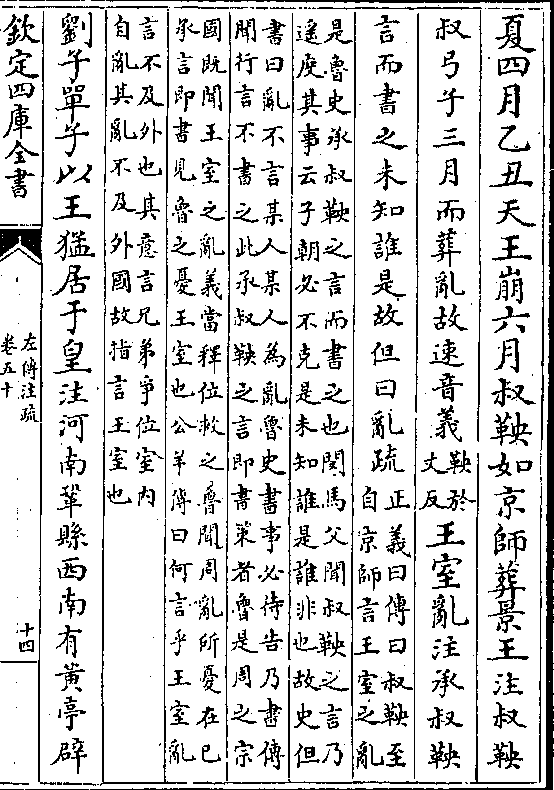 夏四月乙丑天王崩六月叔鞅如京師葬景王注叔鞅
叔弓子三月而葬亂故速音義鞅於丈反王室亂注承叔鞅
言而書之未知誰是故但曰亂疏正義曰傳曰叔鞅至自京師言王室之亂
是魯史承叔鞅之言而書之也閔馬父聞叔鞅之言乃
遥度其事云子朝必不克是未知誰是誰非也故史但
書曰亂不言某人某人為亂魯史書事必待告乃書傳
聞行言不書之此承叔鞅之言即書策者魯是周之宗
國既聞王室之亂義當釋位救之魯聞周亂所憂在已
承言即書見魯之憂王室也公羊傳曰何言乎王室亂
言不及外也其意言兄弟爭位室内
自亂其亂不及外國故指言王室也
劉子單子以王猛居于皇注河南鞏縣西南有黄亭辟
欽定四庫全書
左傳注疏
卷五十
十四